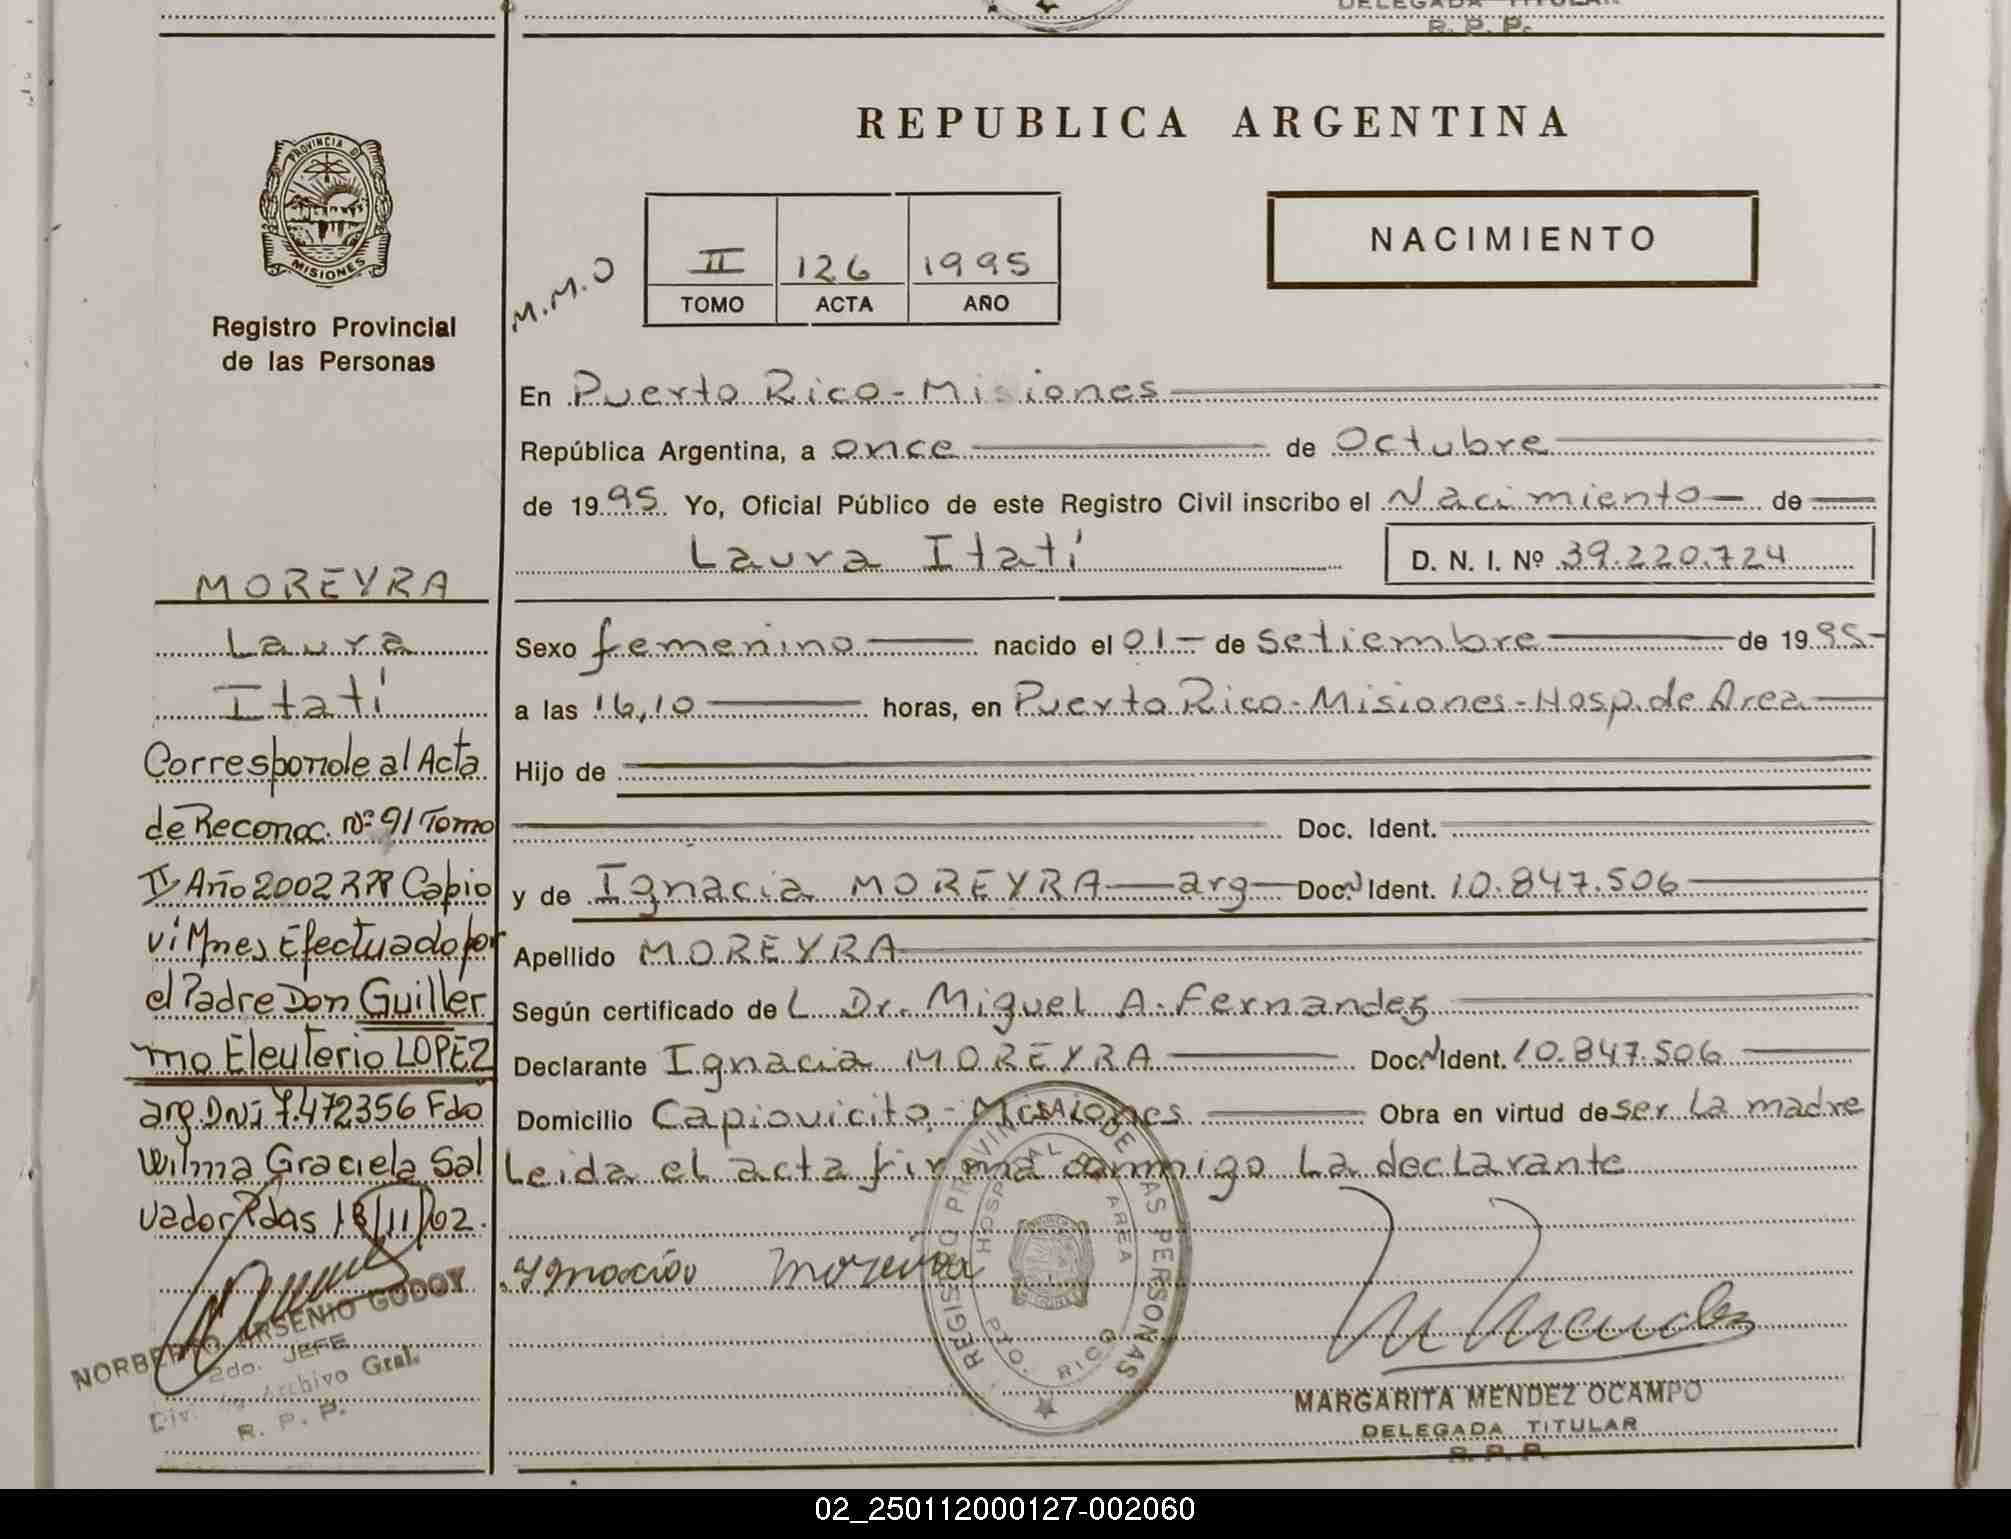 DELEGADA TITULAR
R. P. P.
PROVINCIA D
MISIONES
Registro Provincial
de las Personas
MOREYRA
Laura
Itatí
Corresponde al Acta
de Reconoc. Nº 91 Tomo
II Año 2002 RPP Capio
vi Mnes Efectuado por
el Padre Don Guiller
mo Eleuterio LOPEZ
arg. DNi 7.472356 Fdo
Wilma Graciela Sal
vador Pdas 18/11/02.
NORBERTO ARSENIO GODOY
2do. JEFE
Div. Archivo Gral.
R. P. P.
REPUBLICA ARGENTINA
M.M.O
II 126 1995
TOMO ACTA AÑO
NACIMIENTO
En Puerto Rico - Misiones
República Argentina, a once de Octubre
de 1995 Yo, Oficial Público de este Registro Civil inscribo el Nacimiento de
Laura Itatí D. N. I. Nº 39.220.724
Sexo femenino nacido el 01 de setiembre de 1995
a las 16,10 horas, en Puerto Rico - Misiones - Hosp. de Area
Hijo de
Doc. Ident.
y de Ignacia MOREYRA arg Doc. N Ident. 10.847.506
Apellido MOREYRA
Según certificado de L Dr. Miguel A. Fernandez
Declarante Ignacia MOREYRA Doc. N Ident. 10.847.506
Domicilio Capiovicito - Misiones Obra en virtud de ser la madre
Leida el acta firma conmigo la declarante
Ignacia Moreira
REGISTRO PROVINCIAL DE LAS PERSONAS
HOSPITAL DE AREA
PTO. RICO
MARGARITA MENDEZ OCAMPO
DELEGADA TITULAR
R. P. P.
02_250112000127-002060